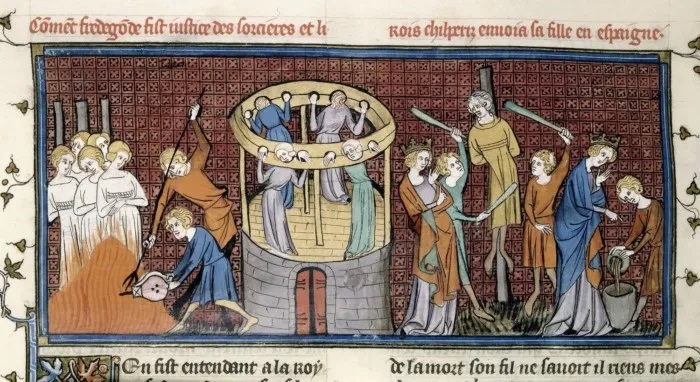 Comēt fredegōde fist iustice des sorcieres et li
rois chilperiz enuoia sa fille en espaigne.
En fist entendant a la roy
de la mort son fil ne sauoit il riens mes